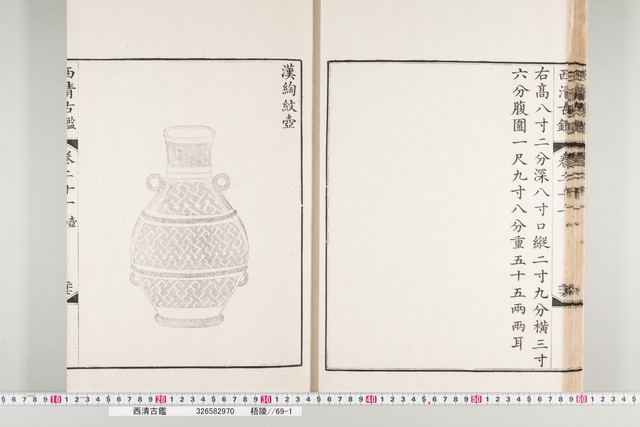 右高八寸二分深八寸口縱二寸九分橫三寸
六分腹圍一尺九寸八分重五十五兩兩耳
漢綯紋壺
西清古鑑 卷二十一 壺
西清古鑑 326582970 梧陵//69-1